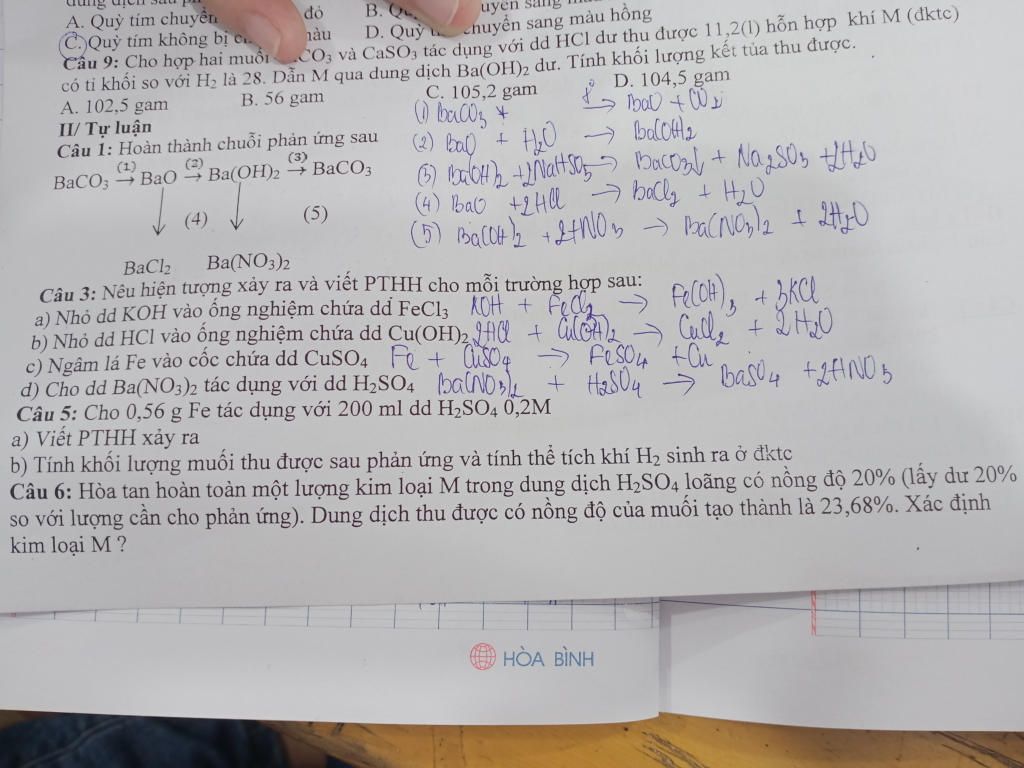 dung dịch sau
A. Quỳ tím chuyển đỏ B. chuyển sang
C. Quỳ tím không bị màu D. Quỳ chuyển sang màu hồng
Câu 9: Cho hợp hai muối CO3 và CaSO3 tác dụng với dd HCl dư thu được 11,2(l) hỗn hợp khí M (đktc)
có tỉ khối so với H2 là 28. Dẫn M qua dung dịch Ba(OH)2 dư. Tính khối lượng kết tủa thu được.
A. 102,5 gam B. 56 gam C. 105,2 gam D. 104,5 gam
II/ Tự luận
Câu 1: Hoàn thành chuỗi phản ứng sau
BaCO3 (1)→ BaO (2)→ Ba(OH)2 (3)→ BaCO3
(4) (5)
BaCl2 Ba(NO3)2
(1) BaCO3 → BaO + CO2
(2) BaO + H2O → Ba(OH)2
(3) Ba(OH)2 + 2NaHSO3 → BaCO3↓ + Na2SO3 + 2H2O
(4) BaO + 2HCl → BaCl2 + H2O
(5) Ba(OH)2 + 2HNO3 → Ba(NO3)2 + 2H2O
Câu 3: Nêu hiện tượng xảy ra và viết PTHH cho mỗi trường hợp sau:
a) Nhỏ dd KOH vào ống nghiệm chứa dd FeCl3 KOH + FeCl3 → Fe(OH)3 + 3KCl
b) Nhỏ dd HCl vào ống nghiệm chứa dd Cu(OH)2 2HCl + Cu(OH)2 → CuCl2 + 2H2O
c) Ngâm lá Fe vào cốc chứa dd CuSO4 Fe + CuSO4 → FeSO4 + Cu
d) Cho dd Ba(NO3)2 tác dụng với dd H2SO4 Ba(NO3)2 + H2SO4 → BaSO4 + 2HNO3
Câu 5: Cho 0,56 g Fe tác dụng với 200 ml dd H2SO4 0,2M
a) Viết PTHH xảy ra
b) Tính khối lượng muối thu được sau phản ứng và tính thể tích khí H2 sinh ra ở đktc
Câu 6: Hòa tan hoàn toàn một lượng kim loại M trong dung dịch H2SO4 loãng có nồng độ 20% (lấy dư 20%
so với lượng cần cho phản ứng). Dung dịch thu được có nồng độ của muối tạo thành là 23,68%. Xác định
kim loại M ?
HÒA BÌNH